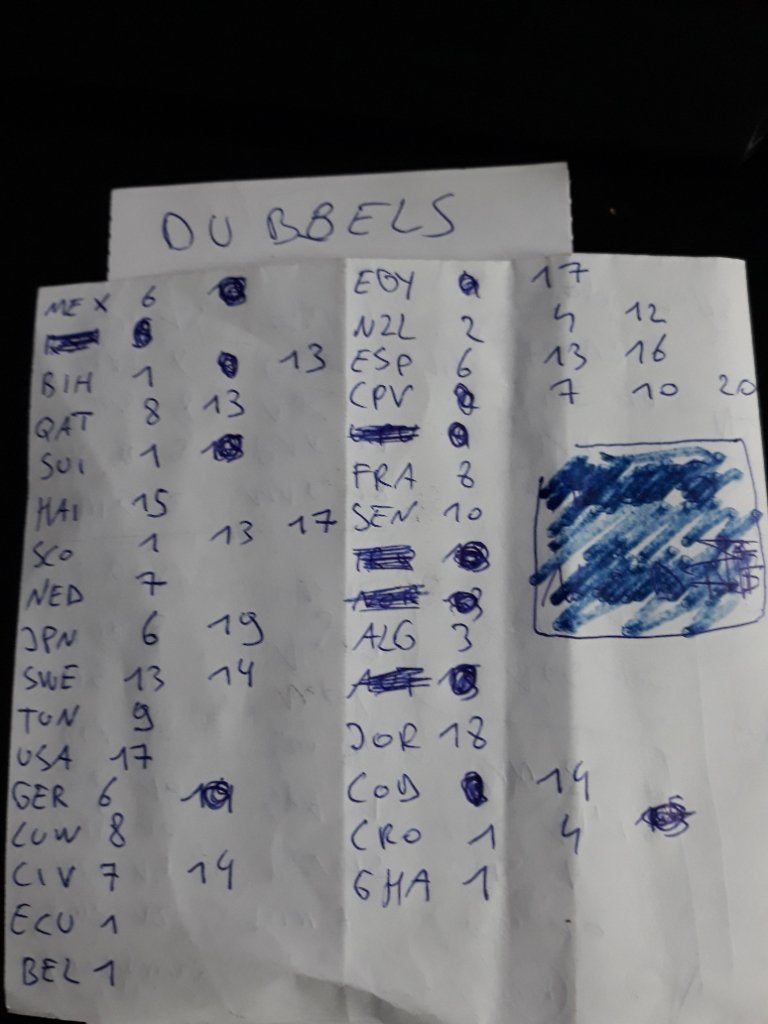 DUBBELS
MEX 6
BIH 1 13
QAT 8 13
SUI 1
HAI 15
SCO 1 13 17
NED 7
JPN 6 19
SWE 13 14
TUN 9
USA 17
GER 6
CUW 8
CIV 7 14
ECU 1
BEL 1
EGY 17
NZL 2 4 12
ESP 6 13 16
CPV 7 10 20
FRA 8
SEN 10
ALG 3
JOR 18
COD 14
CRO 1 4
GHA 1